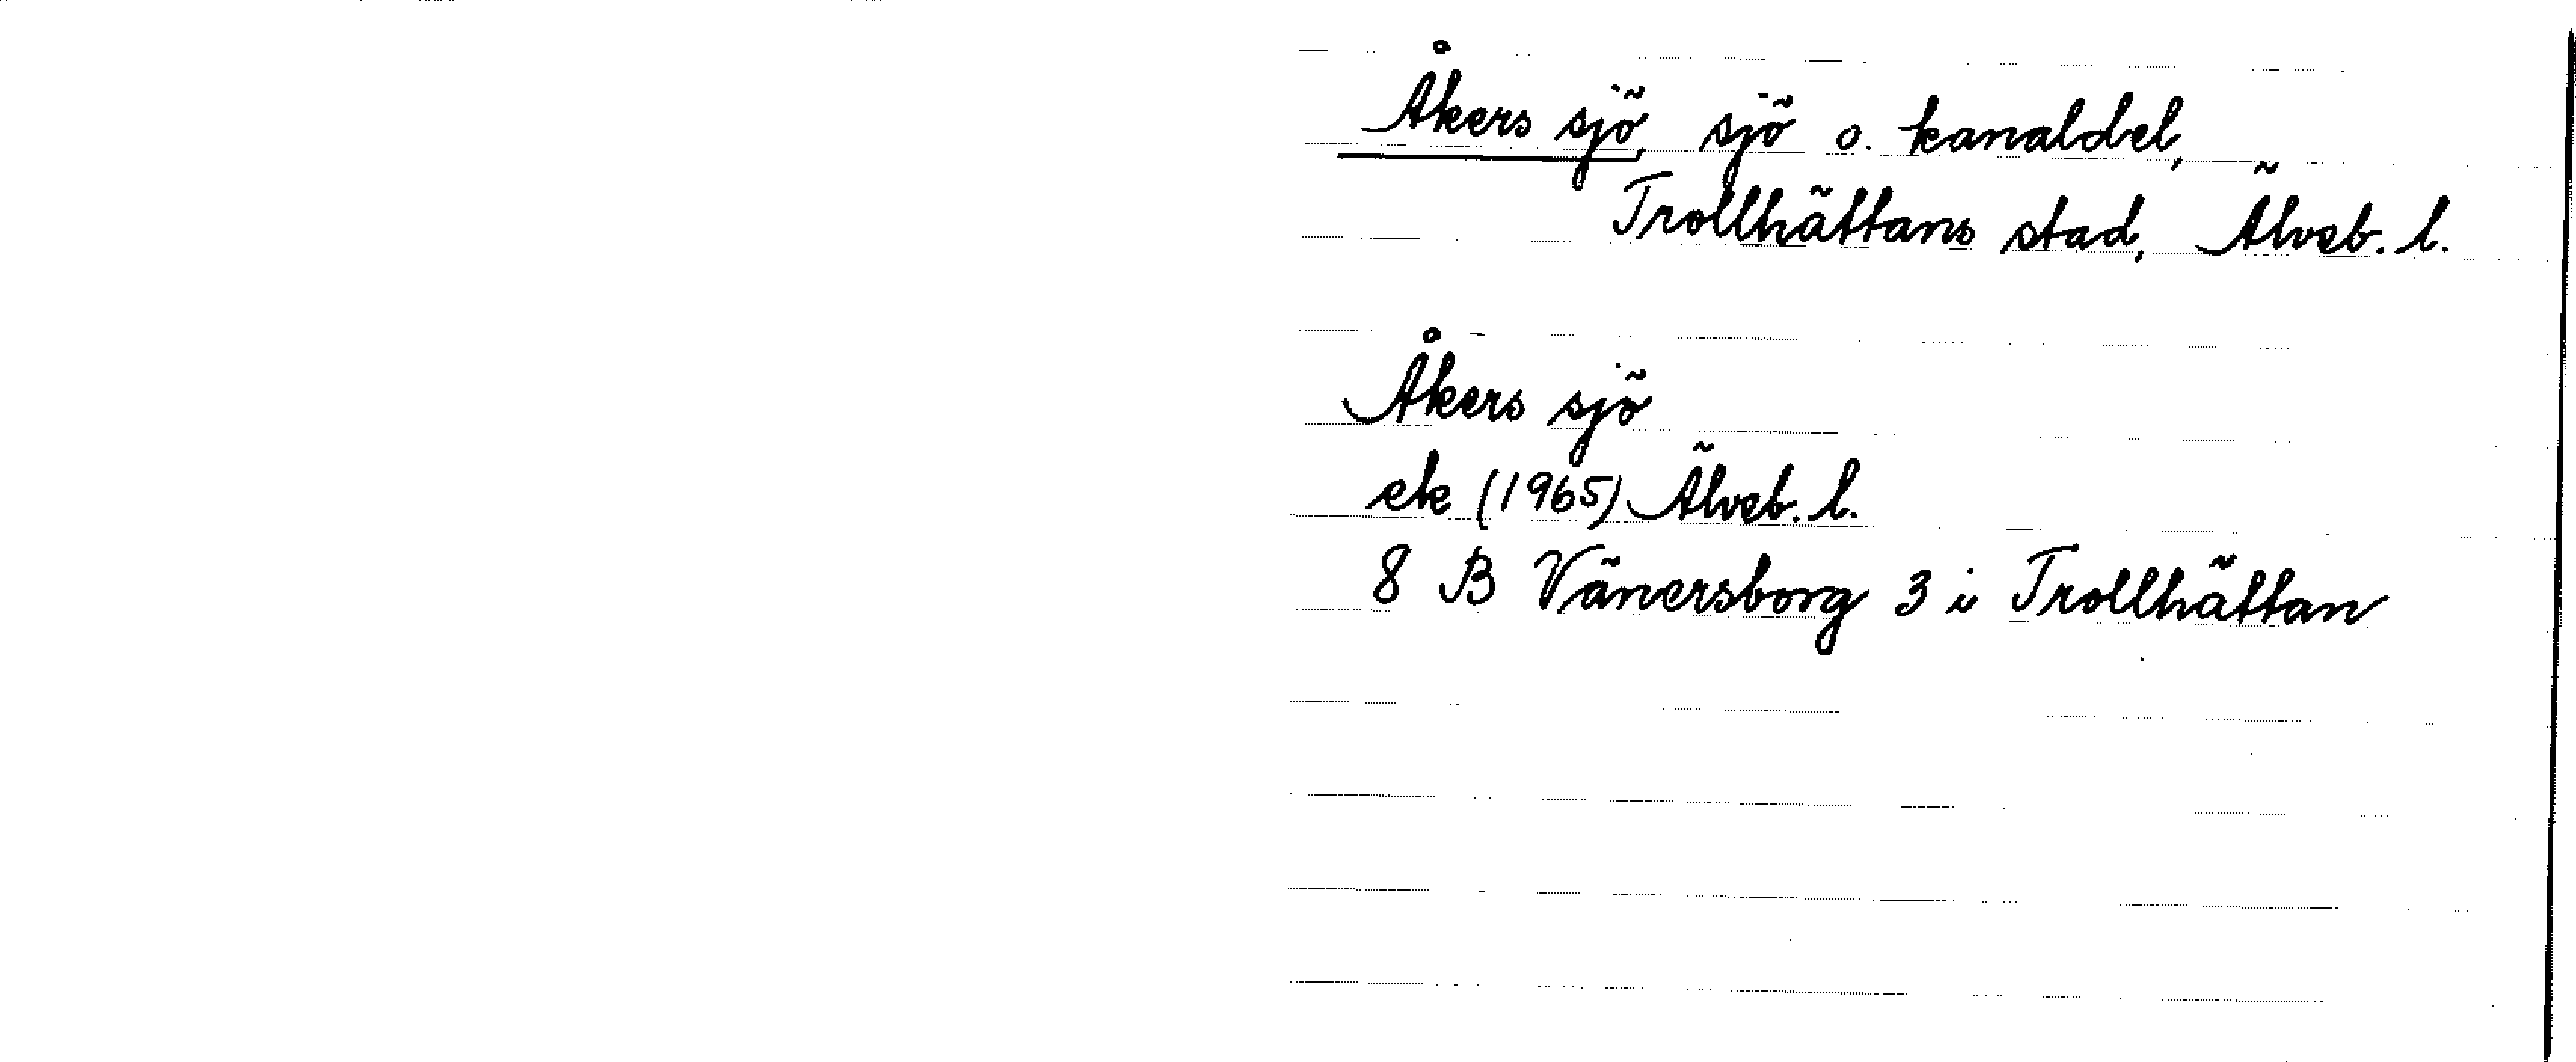 Åkers sjö, sjö o. kanaldel,
Trollhättans stad, Älvsb. l.
Åkers sjö
ek (1965) Älvsb. l.
8 B Vänersborg 3 i Trollhättan